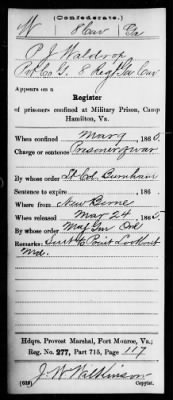 (Confederate.)
W 8 Cav Ga
P. J. Waldrop
Pvt Co G, 8 Regt Ga Cav
Appears on a
Register
of prisoners confined at Military Prison, Camp
Hamilton, Va.
When confined Mar 9, 1865.
Charge or sentence Prisoner of war
By whose order Lt Col. Burnham
Sentence to expire , 186 .
Where from New Berne
When released Mar 24 1865.
By whose order Maj Gen Ord
Remarks: Sent to Point Lookout
Md.
Hdqrs. Provost Marshal, Fort Monroe, Va.;
Reg. No. 277, Part 715, Page 117
J. W. Wilkinson
(639) Copyist.